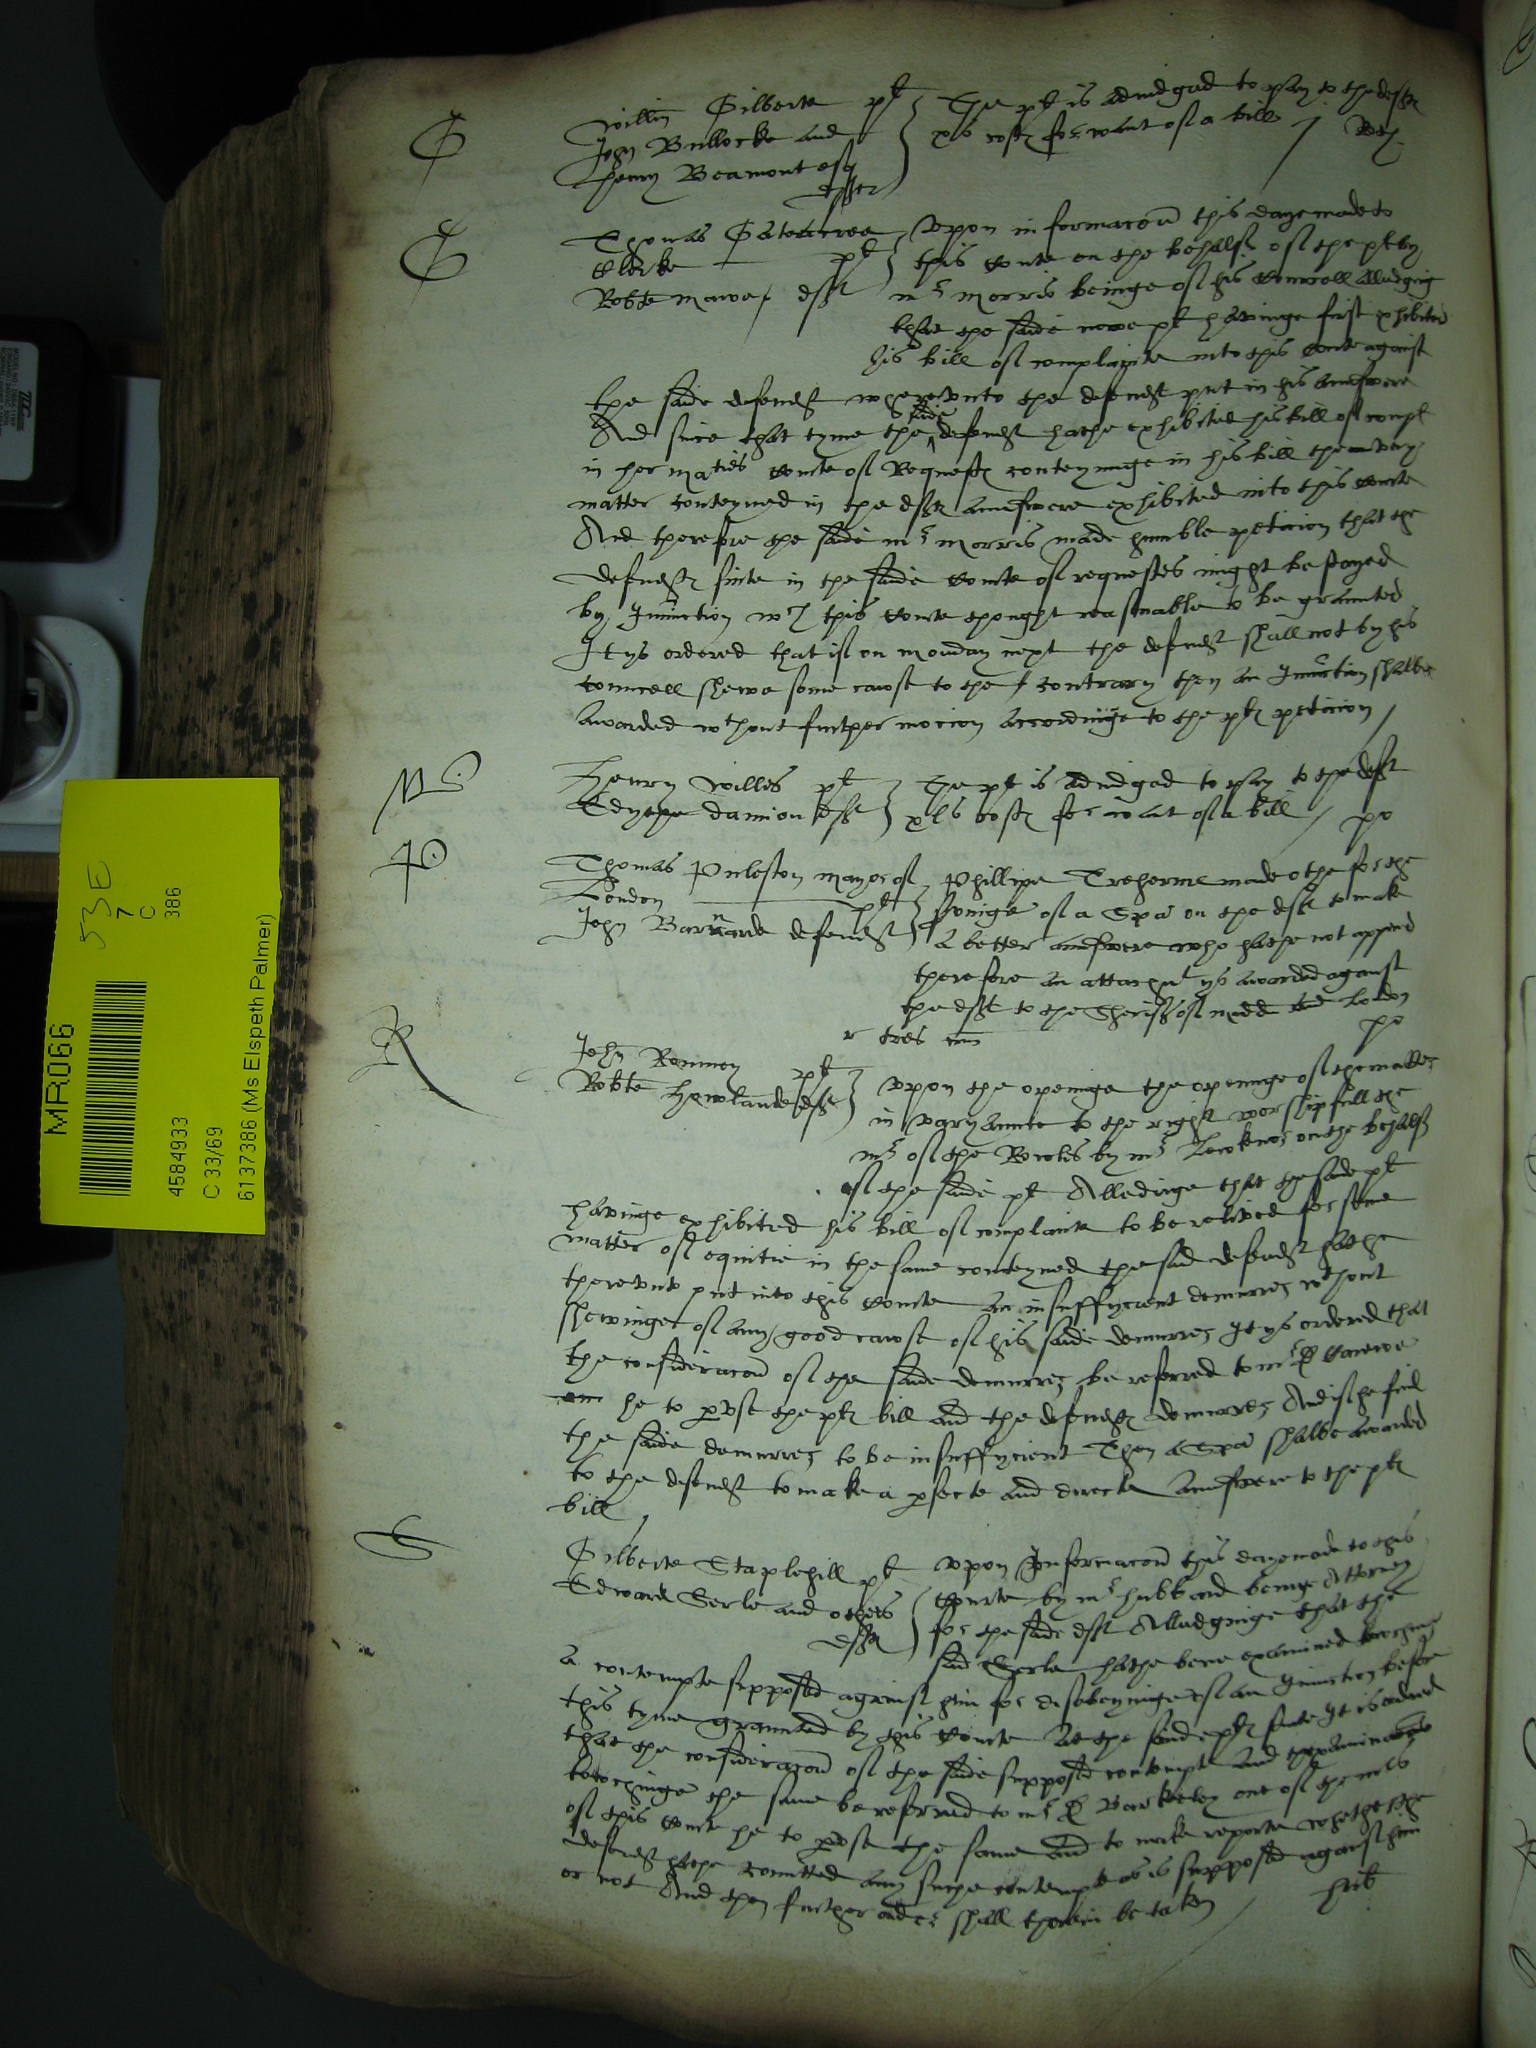 G
Willm Gilberte plt
John Bullocke and
Henry Beamont esq
deftes
The plt is adiudged to pay to the deftes
xvs costes for want of a bill /
G
Thomas Gatacree
Clerke plt
Robte mawe deft
Vpon informacon this daye made to
this Courte on the behalf of the plt by
mr morris beinge of his Councell Alledging
that the saide nowe plt havinge first exhibited
his bill of complainte into this Courte against
the saide defendt wherevnto the defendt put in his Aunswere
And since that tyme the saide defendt hathe exhibited his bill of compl
in her maties Courte of Requests conteyninge in his bill the very
matter conteyned in the deftes Aunswere exhibited into this Courte
And therefore the saide mr morris made humble peticion that the
defendtes suite in the saide Courte of requestes might be stayed
by Iniunction wch this Courte thought reasonable to be graunted
It ys ordered that if on monday next the defendt shall not by his
Councell shewe some cawse to the contrary then an Iniunction shalbe
Awarded wthout further mocion accordinge to the pltes peticion /
W
Henry Willes plt
Edythe Damion deft
The plt is Adiudged to pay to the deft
xls costes for want of a bill / po
P
Thomas Puleston mayor of
London plt
John Barnarde defendt
Phillipe Treherne made othe for the
servinge of a Spa on the deft to make
a better aunswere who hathe not appered
therefore an attachmt ys awarded against
the deft to the Sheriff of midd and London
r tres po
R
John Romney plt
Robte Hewlande deft
Vpon the openinge the openinge of the matter
in varyaunce to the right worshipfull the
mr of the Rowles by mr Lewkenor on the behalf
of the saide plt Alledinge that the saide plt
havinge exhibited his bill of complainte to be releved for some
matter of equitie in the same conteyned the said defendt hathe
therevnto put into this Courte an insuffycient demurrer wthout
shewinge of any good cawse of his saide demurrer It ys ordered that
the consideracon of the saide demurrer be referred to mr D Carewe
he to pvse the pltes bill and the defendtes demurrer And if he find
the saide demurrer to be insuffycient Then a Spa shalbe awarded
to the defendt to make a pfecte and directe Aunswere to the pltes
bill
S
Gilberte Staplehill plt
Edwarde Serle and others
deftes
Vpon Informacon this daye made to this
Courte by mr hubbard beinge Attorney
for the saide deft Alledginge that the
said Serle hathe bene examined towching
a contempte supposed against him for disobeyinge of an Iniunction before
this tyme graunted by this Courte At the saide pltes suite It is ordered
that the consideracon of the saide supposed contempte And thexaminacons
towchinge the same be referred to mr D Barkeley one of the mrs
of this Courte he to pvse the same and to make reporte whether the
defendt hathe comitted any suche contempte as is supposed against him
or not And then further order shall therein be taken /
MR066
53E
7
C
386
4584933
C 33/69
6137386 (Ms Elspeth Palmer)